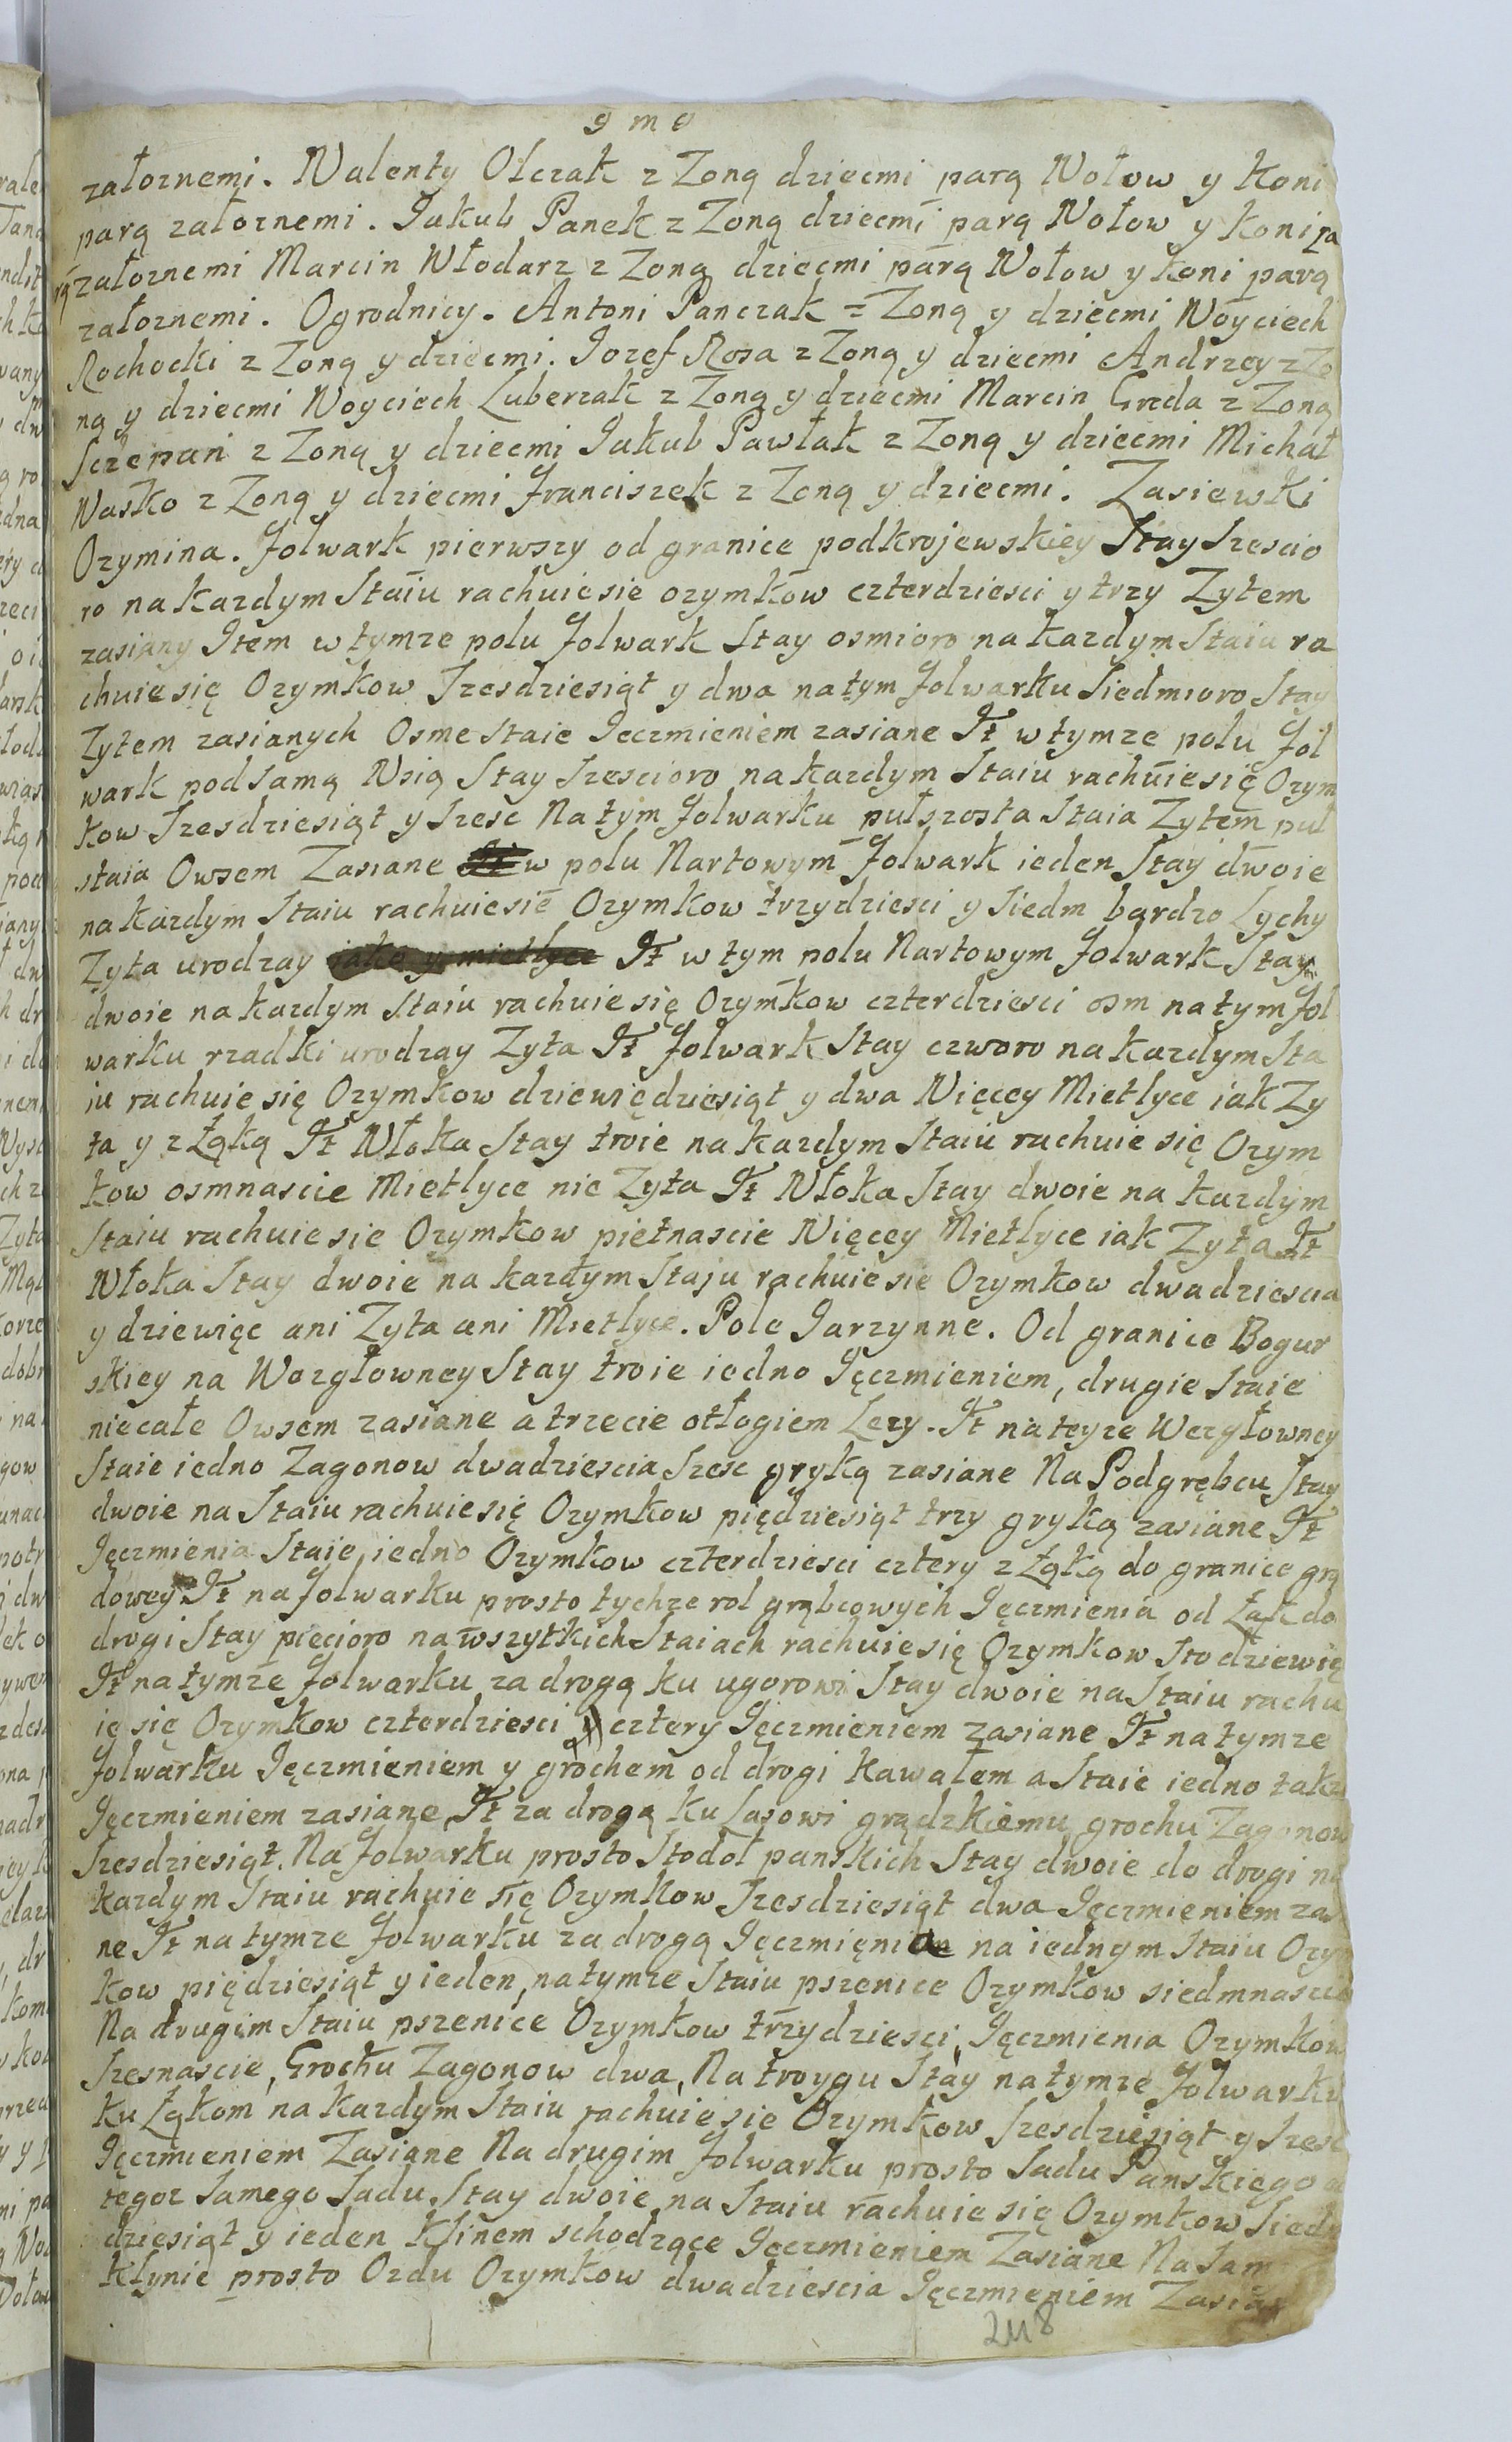 9 m o
załoznemi. Walenty Olczak z Zoną dziecmi parą Wołow y Koni
parą załoznemi. Jakub Panek z Zoną dziecmi parą Wołow y koni pa
rą załoznemi Marcin Włodarz z Zoną dziecmi parą Wołow y koni parą
załoznemi. Ogrodnicy. Antoni Panczak z Zoną y dziecmi Woyciech
Rochocki z Zoną y dziecmi. Jozef Rosa z Zoną y dziecmi Andrzey z Zo
ną y dziecmi Woyciech Luberzak z Zoną y dziecmi Marcin Grzda z Zoną
Sczepan z Zoną y dziecmi Jakub Pawlak z Zoną y dziecmi Michał
Wasko z Zoną y dziecmi Franciszek z Zoną y dziecmi. Zasiewki
Ozymina. Folwark pierwszy od granice podkrojewskiey Stay Szescio
ro na kazdym Staiu rachuie sie ozymkow czterdziesci y trzy Zytem
zasiany Item w tymze polu Folwark Stay osmioro na kazdym Staiu ra
chuie się Ozymkow Szesdziesiąt y dwa na tym Folwarku Siedmioro Stay
Zytem zasianych Osme Staie Jeczmieniem zasiane It w tymze polu Fol
wark pod samą Wsią Stay Szescioro na kazdym Staiu rachuie się Ozym
kow Szesdziesiąt y Szesc Na tym Folwarku pułszosta Staia Zytem puł
staia Owsem Zasiane w polu Nartowym Folwark ieden Stay dwoie
na kazdym Staiu rachuie sie Ozymkow trzydziesci y Siedm bardzo Lychy
Zyta urodzay iako y mietlyce It w tym polu Nartowym Folwark Stay
dwoie na kazdym Staiu rachuie się Ozymkow czterdziesci osm na tym Fol
warku rzadki urodzay Zyta It Folwark Stay czworo na kazdym Sta
iu rachuie się Ozymkow dziewiędziesiąt y dwa Więcey Mietlyce iak Zy
ta y z Łąką It Włoka Stay troie na kazdym Staiu rachuie się Ozym
kow osmnascie Mietlyce nie Zyta It Włoka Stay dwoie na kazdym
Staiu rachuie sie Ozymkow pietnascie Więcey Mietlyce iak Zyta It
Włoka Stay dwoie na kazdym Staju rachuie sie Ozymkow dwadziescia
y dziewięc ani Zyta ani Mietlyce. Pole Jarzynne. Od granice Bogur
skiey na Wezgłowney Stay troie iedno Jęczmieniem, drugie Staie
niecałe Owsem zasiane a trzecie odłogiem Lezy. It na teyze Wezgłowney
Staie iedno Zagonow dwadziescia Szesc gryką zasiane Na Podgrębcu Stay
dwoie na Staiu rachuie się Ozymkow pięcdziesiąt trzy gryką zasiane It
Jęczmienia Staie iedno Ozymkow czterdziesci cztery z Łąką do granice grą
dowey It na Folwarku prosto tychze rol grąbcowych Jęczmienia od Łąk do
drogi Stay pięcioro na wszytkich Staiach rachuie się Ozymkow Sto dziewię
It na tymze Folwarku za drogą ku ugorowi Stay dwoie na Staiu rachu
ie się Ozymkow czterdziesci y cztery Jęczmieniem zasiane It na tymze
Folwarku Jęczmieniem y grochem od drogi kawałem a Staie iedno takz
Jęczmieniem zasiane It za drogą ku Lasowi grądzkiemu grochu Zagonow
Szesdziesiąt. Na Folwarku prosto Stodoł panskich Stay dwoie do drogi na
kazdym Staiu rachuie się Ozymkow Szesdziesiąt dwa Jęczmieniem zas
ne It na tymze Folwarku za drogą Jęczmienia na iednym Staiu Ozym
kow pięcdziesiąt y ieden, na tymze Staiu pszenice Ozymkow siedmnascie
Na drugim Staiu pszenice Ozymkow trzydziesci, Jęczmienia Ozymkow
Szesnascie, Grochu Zagonow dwa, Na troygu Stay na tymze Folwarku
ku Łąkom na kazdym Staiu rachuie sie Ozymkow Szesdziesiąt y Szesc
Jęczmieniem Zasiane Na drugim Folwarku prosto Sadu Panskiego
tegoz Samego Sadu, Stay dwoie na Staiu rachuie się Ozymkow Siedm
dziesiąt y ieden klinem schodzące Jęczmieniem Zasiane Na Sam
klynie prosto Ozdu Ozymkow dwadziescia Jęczmieniem Zasia